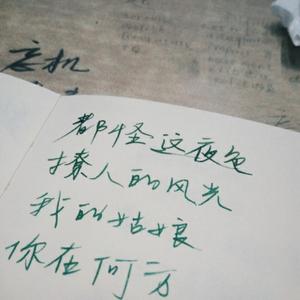 忘机
都怪这夜色
撩人的风光
我的姑娘
你在何方